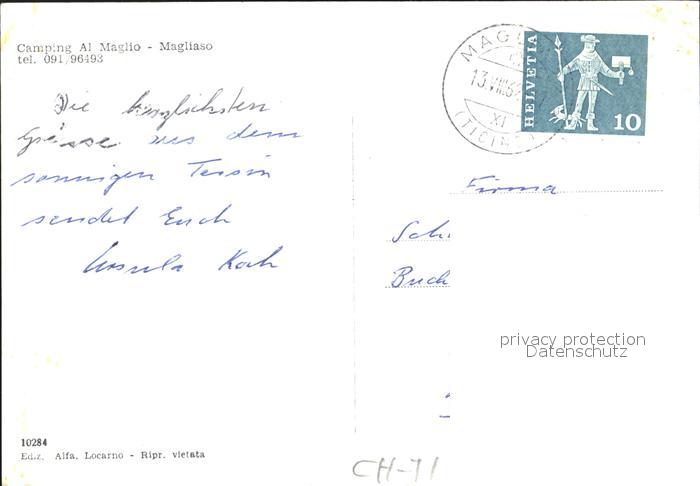 Camping Al Maglio - Magliaso
tel. 091/96493
Die herzlichsten
Grüsse aus dem
sonnigen Tessin
sendet Euch
Ursula Koch
HELVETIA
10
13.VIII.6
XI
(TICINO
Firma
Sch
Buch
privacy protection
Datenschutz
10284
Ediz. Alfa. Locarno - Ripr. vietata
CH-71